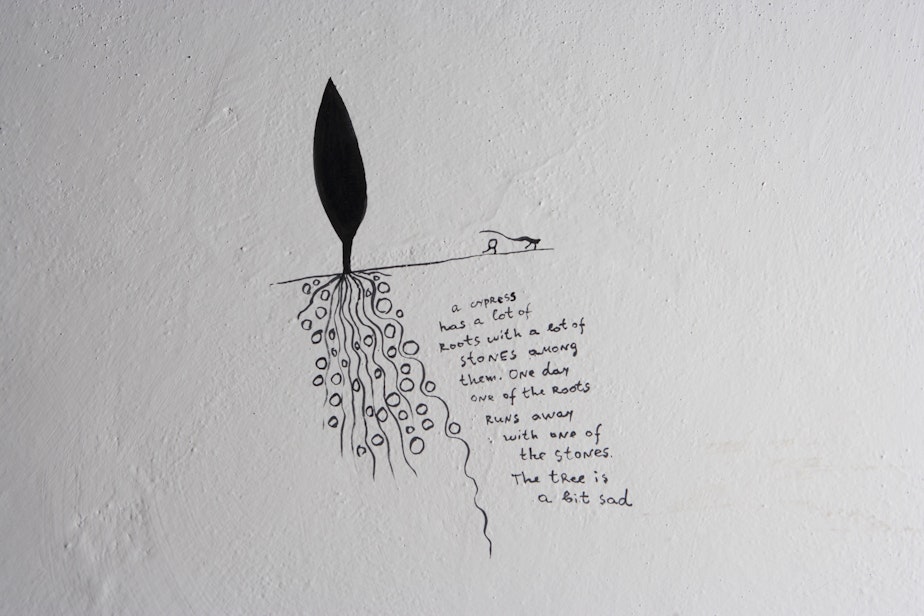 a cypress
has a lot of
Roots with a lot of
stones among
them. One day
one of the Roots
Runs away
with one of
the stones.
The tree is
a bit sad